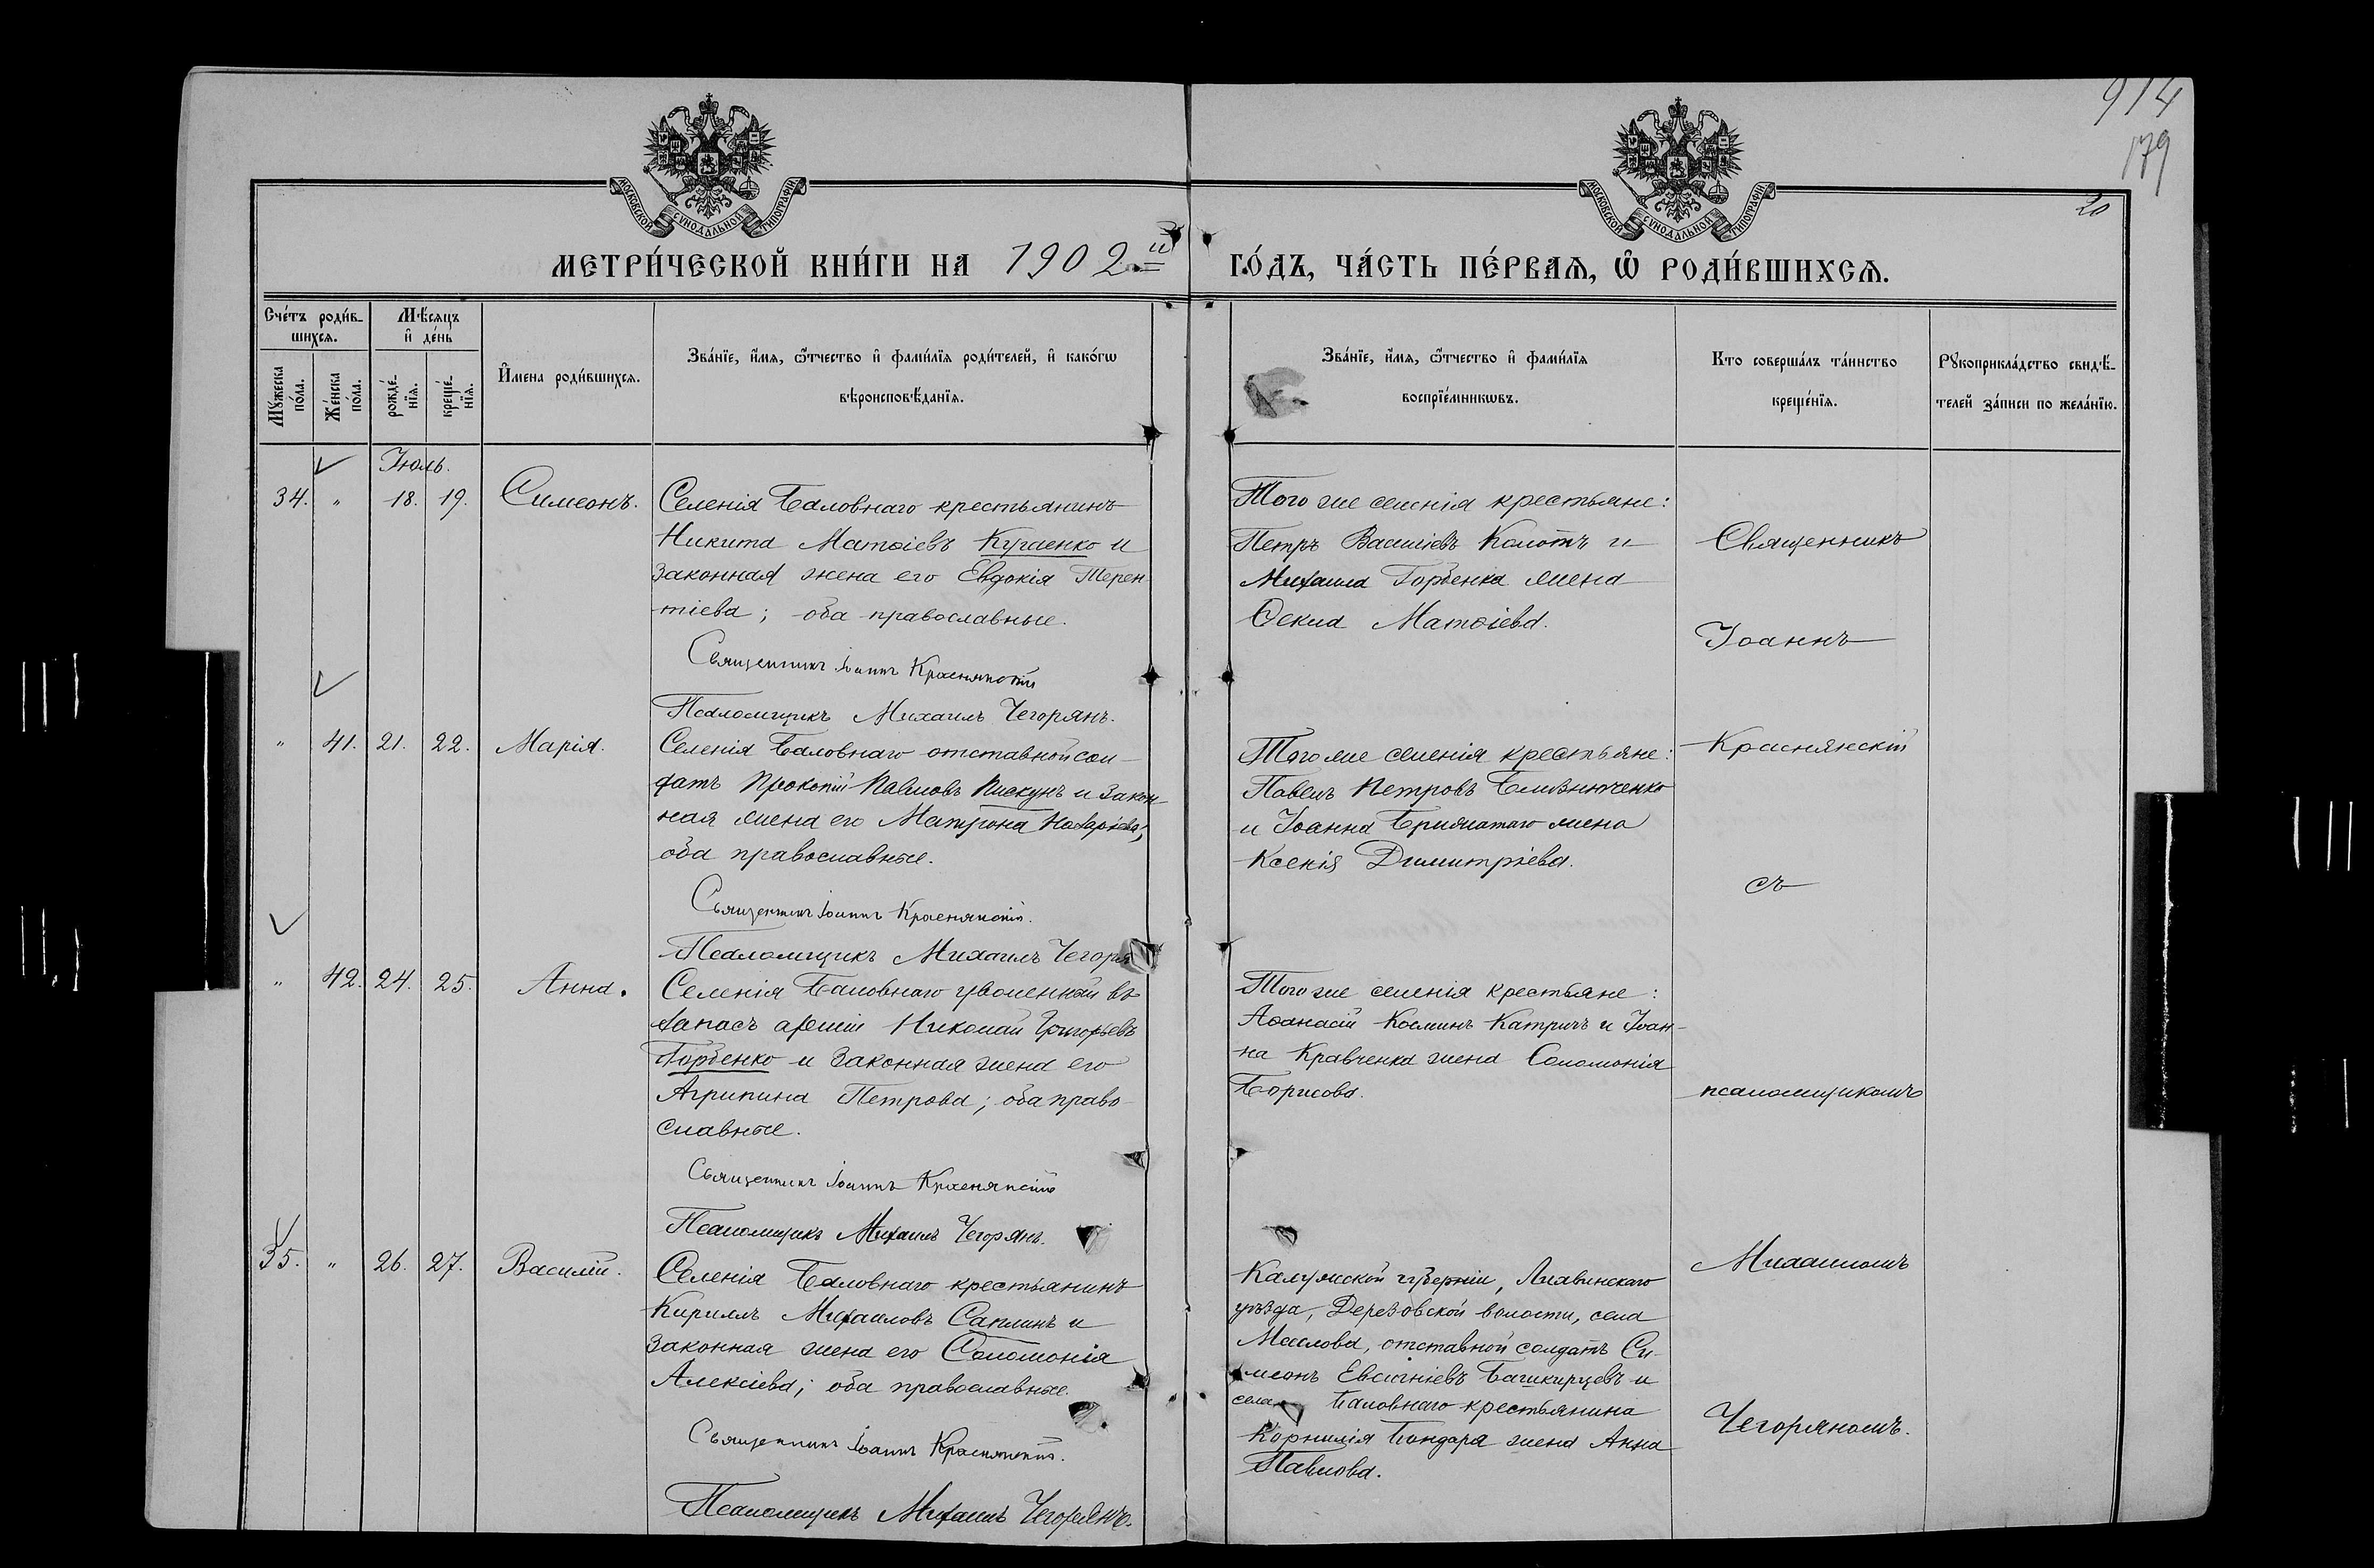 914
179
20
МОСКОВСКОЙ СѴНОДАЛЬНОЙ ТИПОГРАФІИ
МОСКОВСКОЙ СѴНОДАЛЬНОЙ ТИПОГРАФІИ
МЕТРИ́ЧЕСКОЙ КНИ́ГИ НА 1902 й
ГО́ДЪ, ЧА́СТЬ ПЕ́РВАѦ, Ѿ РОДИ́ВШИХСѦ.
Сче́тъ роди́в-
шихсѧ.
Мѣ́сѧцъ
и҆ де́нь
Мꙋ́жеска
по́ла.
Же́нска
по́ла.
рожде́-
нїѧ.
креще́-
нїѧ.
И҆мена роди́вшихсѧ.
Зва́нїе, и҆́мѧ, ѻ҆́тчество и҆ фами́лїѧ роди́телей, и҆ како́гѡ
вѣроисповѣ́данїѧ.
Зва́нїе, и҆́мѧ, ѻ҆́тчество и҆ фами́лїѧ
воспрїе́мникѡвъ.
Кто соверша́лъ та́инство
креще́нїѧ.
Рꙋкоприкла́дство свидѣ́-
телей за́писи по жела́нїю.
Іюль.
34. " 18. 19. Симеонъ.
Селенія Баловнаго крестьянинъ
Никита Матѳіевъ Кугаенко и
законная жена его Евдокія Терен-
тіева; оба православные.
Священникъ Іоаннъ Краснянскій
Псаломщикъ Михаилъ Чегорянъ.
Того же селенія крестьяне:
Петръ Василіевъ Колотъ и
Михаила Горбенка жена
Ѳекла Матѳіева.
" 41. 21. 22. Марія.
Селенія Баловнаго отставной сол-
датъ Прокопій Павловъ Пискунъ и закон-
ная жена его Матрона Назаріева;
оба православные.
Священникъ Іоаннъ Краснянскій.
Псаломщикъ Михаилъ Чегоря
Того же селенія крестьяне:
Павелъ Петровъ Близнюченко
и Іоанна Брижатаго жена
Ксенія Димитріева.
" 42. 24. 25. Анна.
Селенія Баловнаго уволенный въ
запасъ арміи Николай Григорьевъ
Горбенко и законная жена его
Агрипина Петрова; оба право-
славные.
Священникъ Іоаннъ Краснянскій
Псаломщикъ Михаилъ Чегорянъ.
Того же селенія крестьяне:
Аѳанасій Косминъ Катричъ и Іоан-
на Кравченка жена Соломонія
Борисова.
35. " 26. 27. Василій.
Селенія Баловнаго крестьянинъ
Кириллъ Михаиловъ Саплинъ и
законная жена его Соломонія
Алексіева; оба православные.
Священникъ Іоаннъ Краснянскій.
Псаломщикъ Михаилъ Чегорянъ.
Калужской губерніи, Лихвинскаго
уѣзда, Дерезовской волости, села
Маслова, отставной солдатъ Си-
меонъ Евсигніевъ Башкирцевъ и
села Баловнаго крестьянина
Корнилія Бондара жена Анна
Павлова.
Священникъ
Іоаннъ
Краснянскій
съ
псаломщикомъ
Михаиломъ
Чегоряномъ.